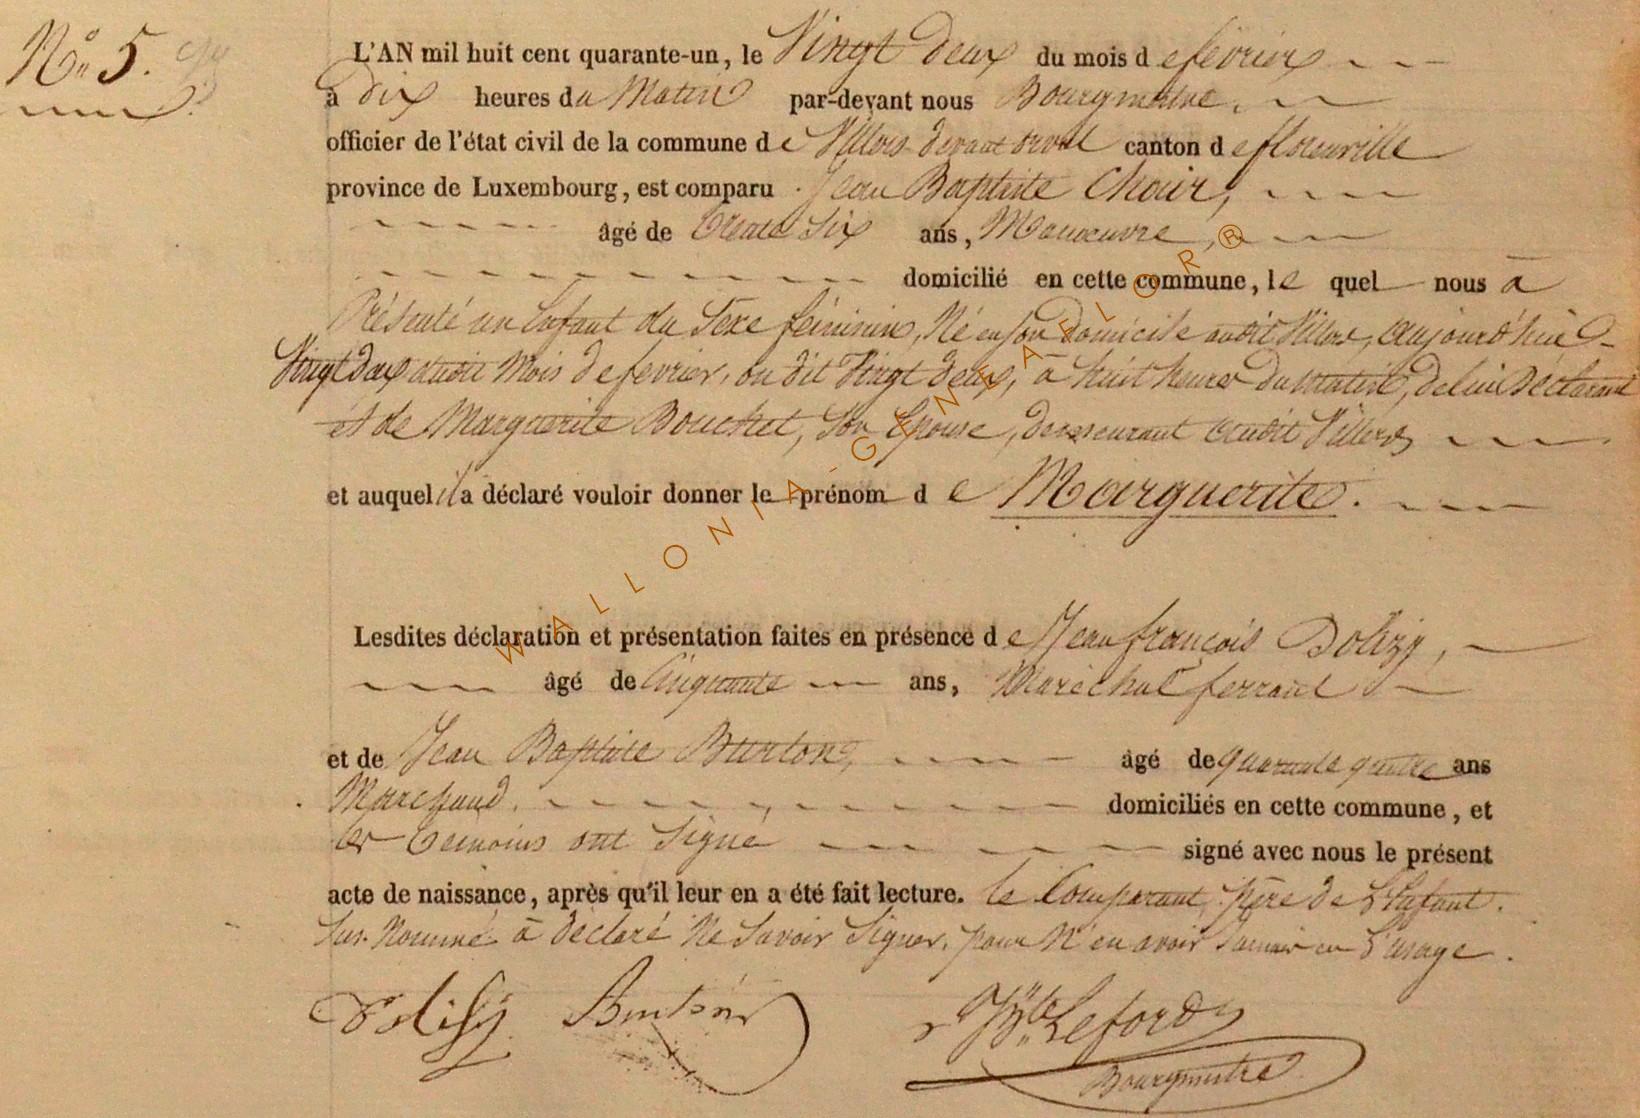 N° 5.
L'AN mil huit cent quarante-un, le Vingt deux du mois de fevrier
à dix heures du Matin par-devant nous Bourgmestre,
officier de l'état civil de la commune de Villers devant orval canton de florenville
province de Luxembourg, est comparu Jean Baptiste Choir,
âgé de trente Six ans, Manœuvre,
domicilié en cette commune, le quel nous à
Présenté un Enfant du Sexe féminin, Né en son Domicile audit Villers, aujourd'hui
Vingt deux dudit Mois de fevrier, ou dit Vingt deux, à huit heures du matin, de lui Déclarant
et de Marguerite Bouchet, Son Epouse, demeurant audit Villers
et auquel il a déclaré vouloir donner le prénom de Marguerite.
Lesdites déclaration et présentation faites en présence de Jean françois Dolizy,
âgé de Cinquante ans, Maréchal ferrant
et de Jean Baptiste Burton, âgé de quarante quatre ans
Marchand, domiciliés en cette commune, et
les Temoins ont Signé signé avec nous le présent
acte de naissance, après qu'il leur en a été fait lecture. Le Comparant, Père de L'Enfant.
Sus. Nommé à déclaré Ne Savoir Signer, pour N'en avoir Jamais eu L'usage.
Dolisy Burton JBte Lefordy
Bourgmestre
WALLONIA-GENEAFLOR®